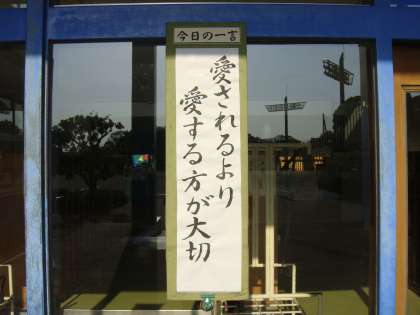 今日の一言
愛されるより
愛する方が大切